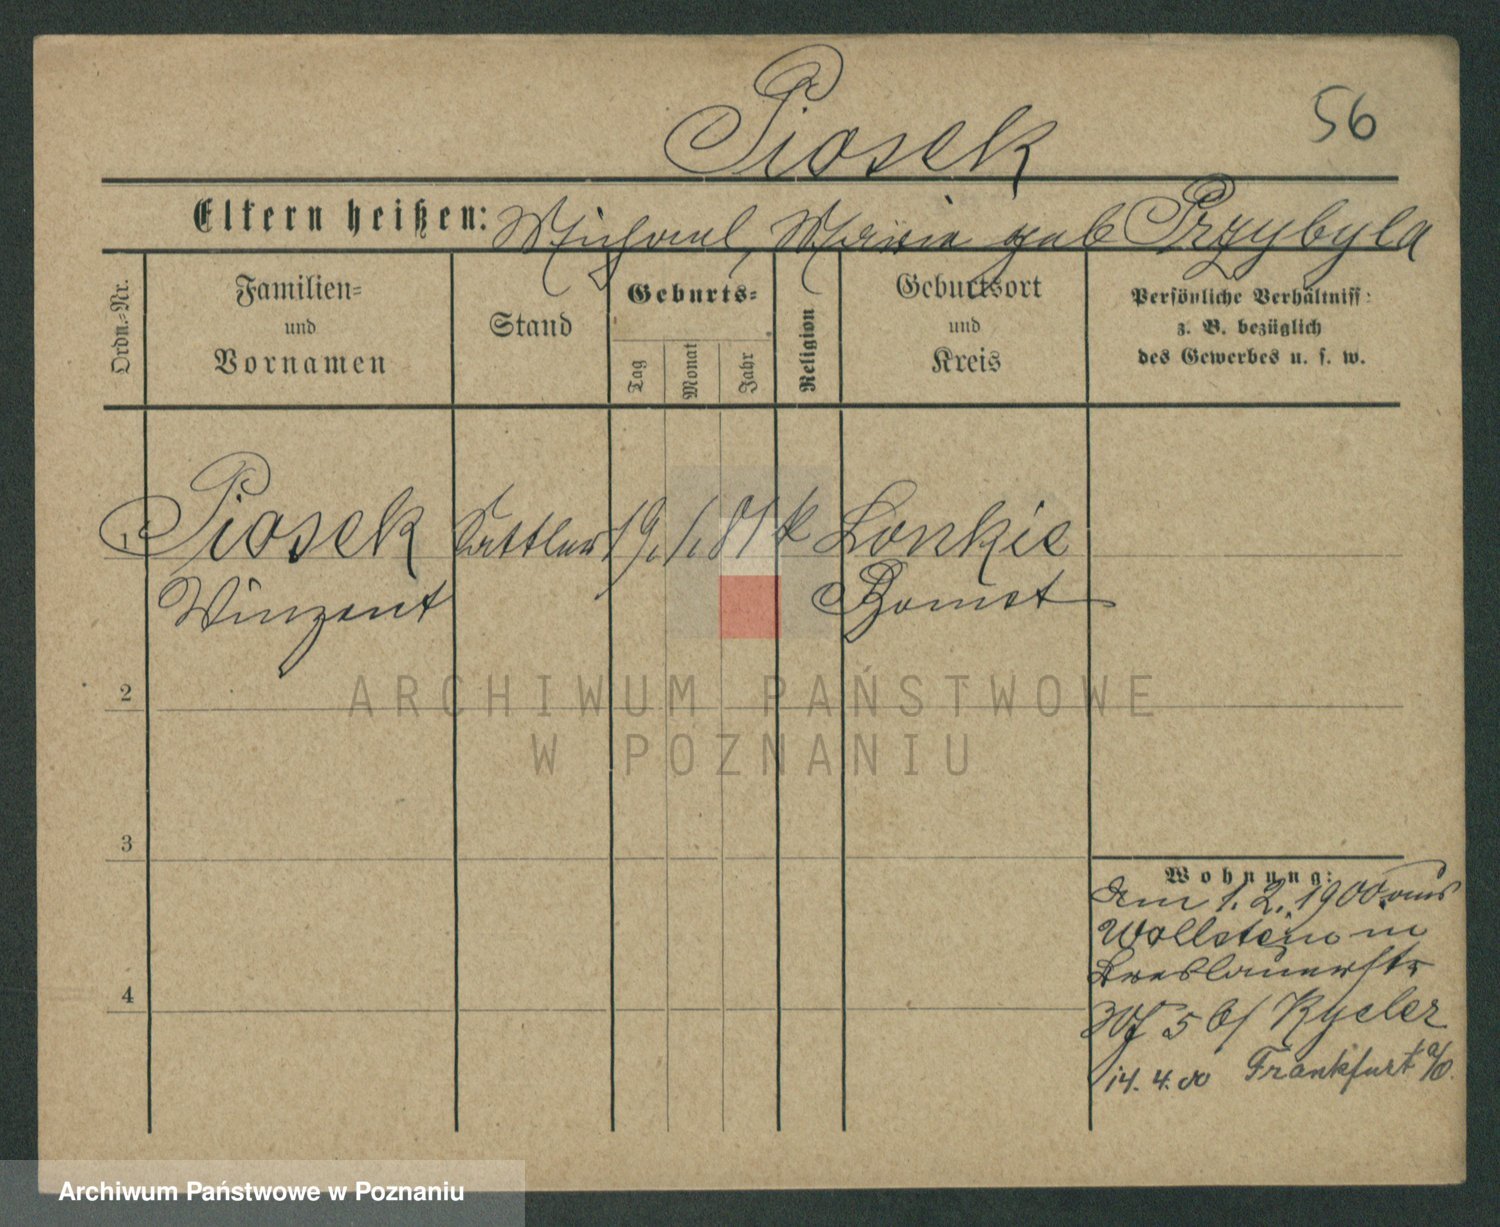 Piosek
56
Eltern heißen: Michael, Marie geb Przybyla
Ordn.-Nr.
Familien-
und
Vornamen
Stand
Geburts-
Tag
Monat
Jahr
Religion
Geburtsort
und
Kreis
Persönliche Verhältniss:
z. B. bezüglich
des Gewerbes u. s. w.
1 Piosek Sattler 19. 1. 81 k Lonkie
Winzent Bomst
2
ARCHIWUM PAŃSTWOWE
W POZNANIU
3
Wohnung:
Am 1. 2. 1900. aus
Wollstein in
Breslauerstr
5 b/ Rycler
14. 4. 00 Frankfurt a/O.
4
Archiwum Państwowe w Poznaniu